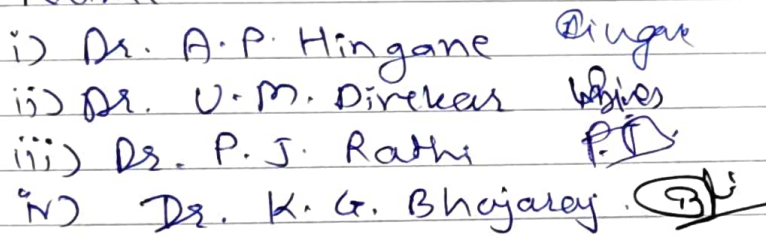 i) Dr. A. P. Hingane
ii) Dr. U. M. Direkar
iii) Dr. P. J. Rathi
iv) Dr. K. G. Bhojaraj